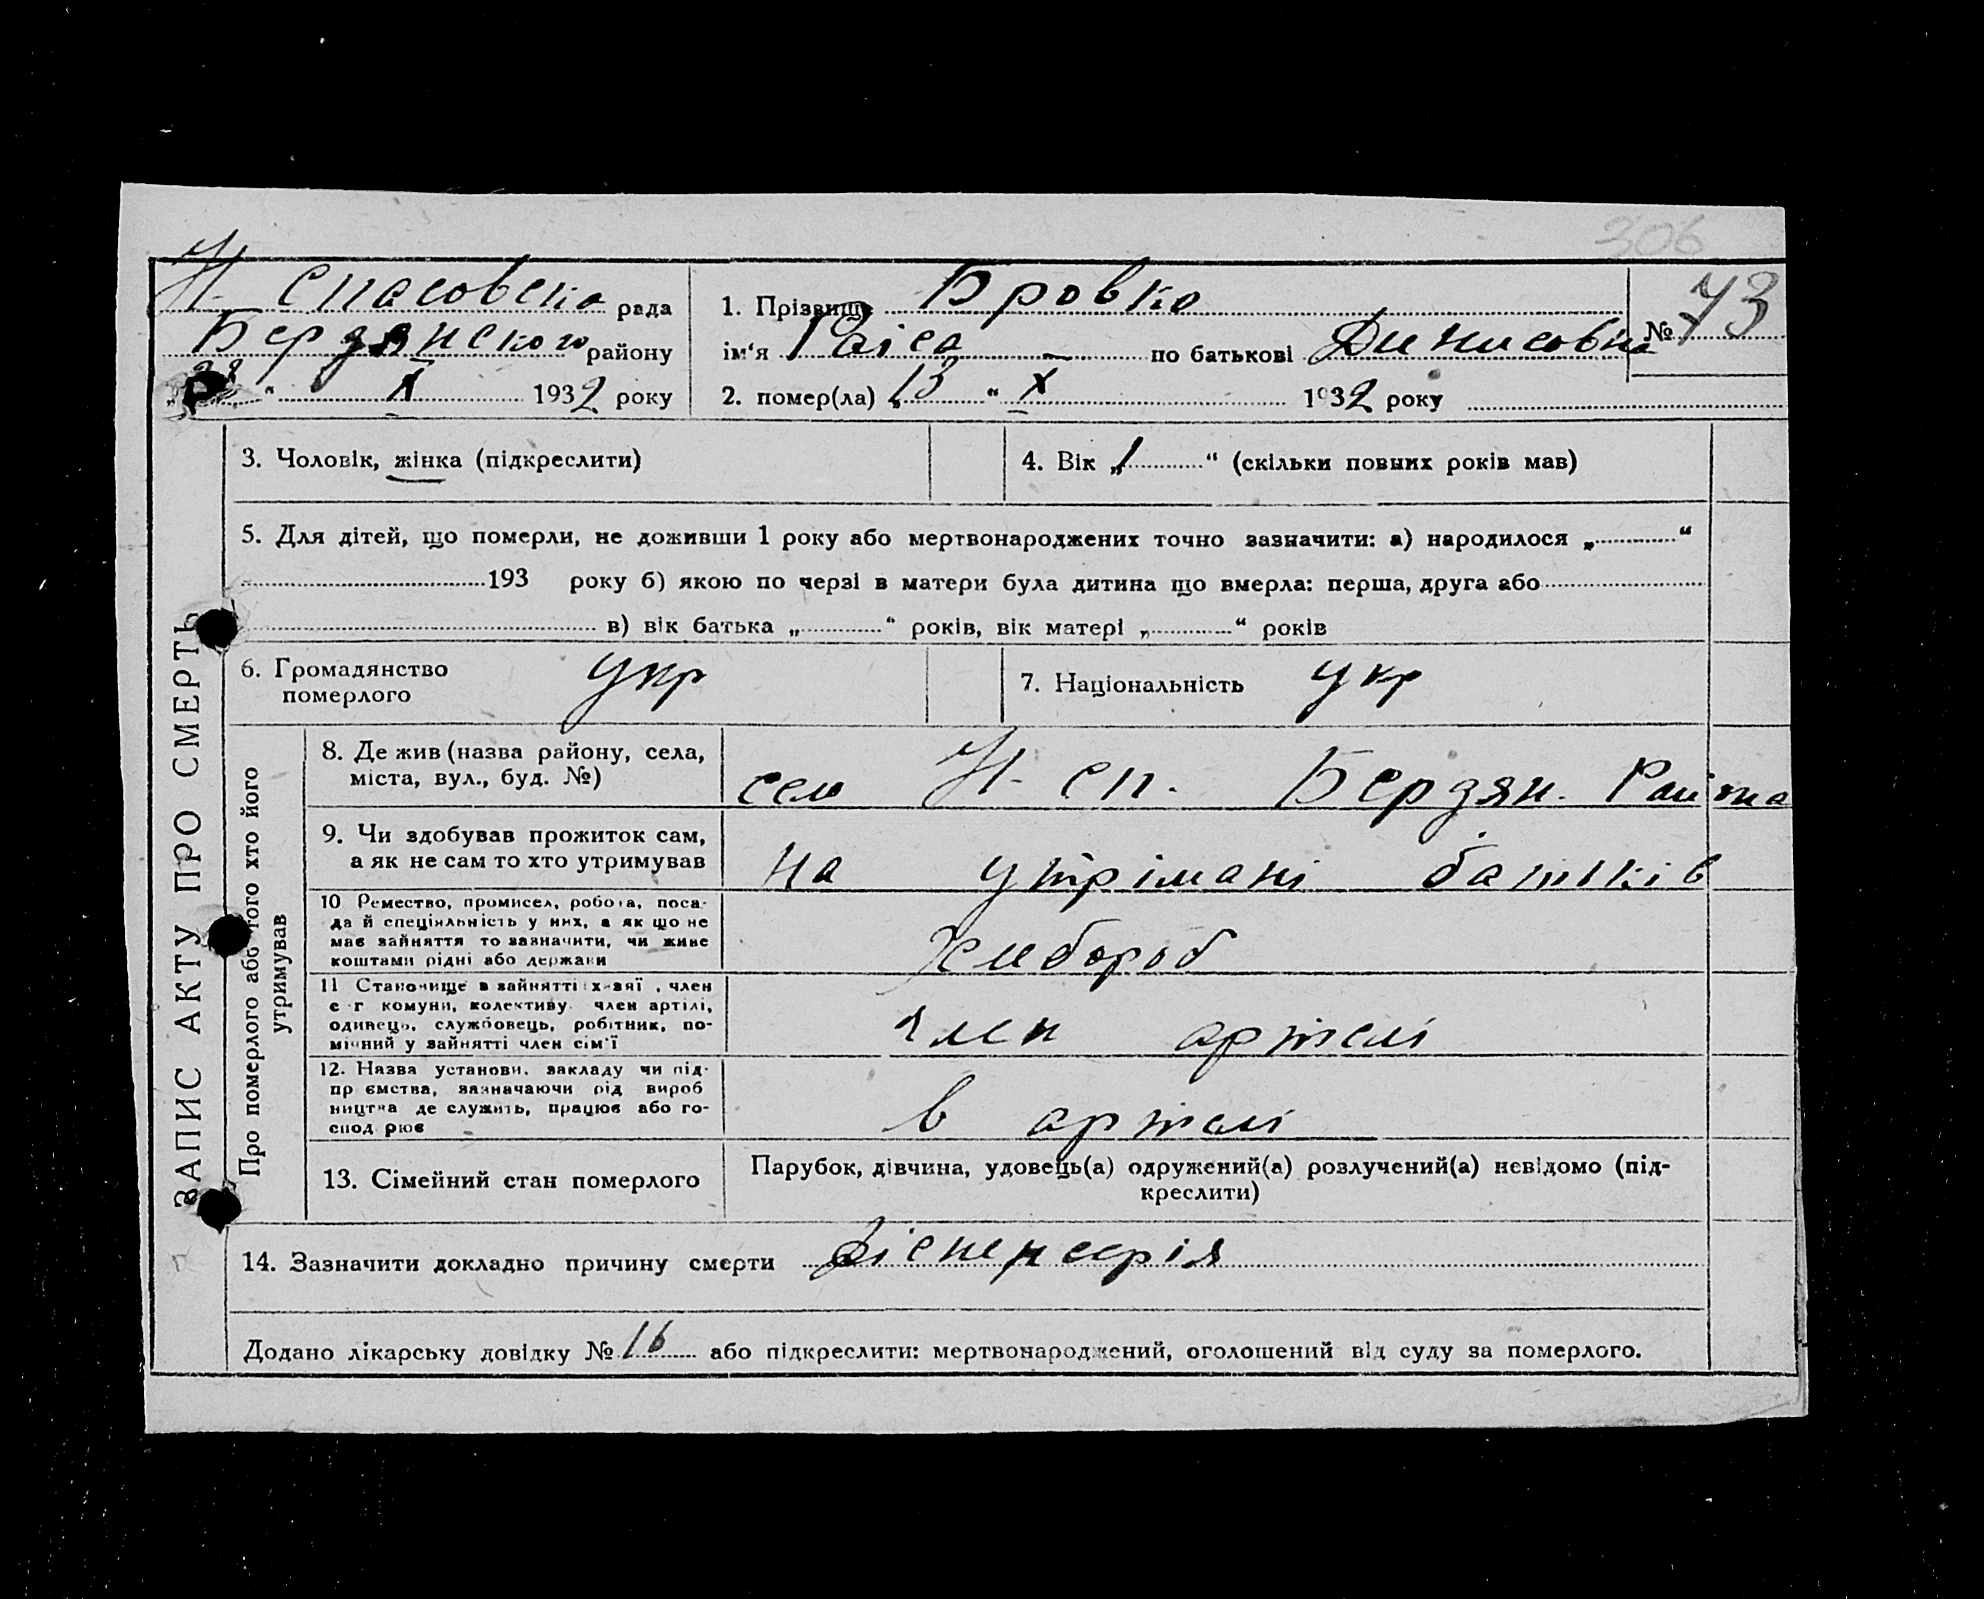 306
Н-Спасовска рада
Бердянского району
" X 1932 року
1. Прізвище Бровко
ім'я Раїса по батькові Динисовна
2. помер(ла) „13 “ X 1932 року
№ 73
ЗАПИС АКТУ ПРО СМЕРТЬ
3. Чоловік, жінка (підкреслити)
4. Вік „1“ (скільки повних років мав)
5. Для дітей, що померли, не доживши 1 року або мертвонароджених точно зазначити: а) народилося „ “
193 року б) якою по черзі в матери була дитина що вмерла: перша, друга або
в) вік батька „ “ років, вік матері „ “ років
6. Громадянство
померлого укр
7. Національність укр
Про померлого або того хто його
утримував
8. Де жив (назва району, села,
міста, вул., буд. №)
село Н-Сп. Бердян. Района
9. Чи здобував прожиток сам,
а як не сам то хто утримував
на утрімані батьків
10 Ремество, промисел, робота, поса-
да й спеціяльність у них, а як що не
має зайняття то зазначити, чи живе
коштами рідні або держави
Хлібороб
11 Становище в зайнятті х-зяї , член
с г комуни, колективу член артілі,
одинець, службовець, робітник, по-
мічний у зайнятті член сім'ї
член артелі
12. Назва установи, закладу чи під-
пр ємства, зазначаючи рід вироб
ництва де служить, працює або го-
спод рює
в артелі
13. Сімейний стан померлого
Парубок, дівчина, удовець(а) одружений(а) розлучений(а) невідомо (під-
креслити)
14. Зазначити докладно причину смерти Діспенсерія
Додано лікарську довідку № 16 або підкреслити: мертвонароджений, оголошений від суду за померлого.